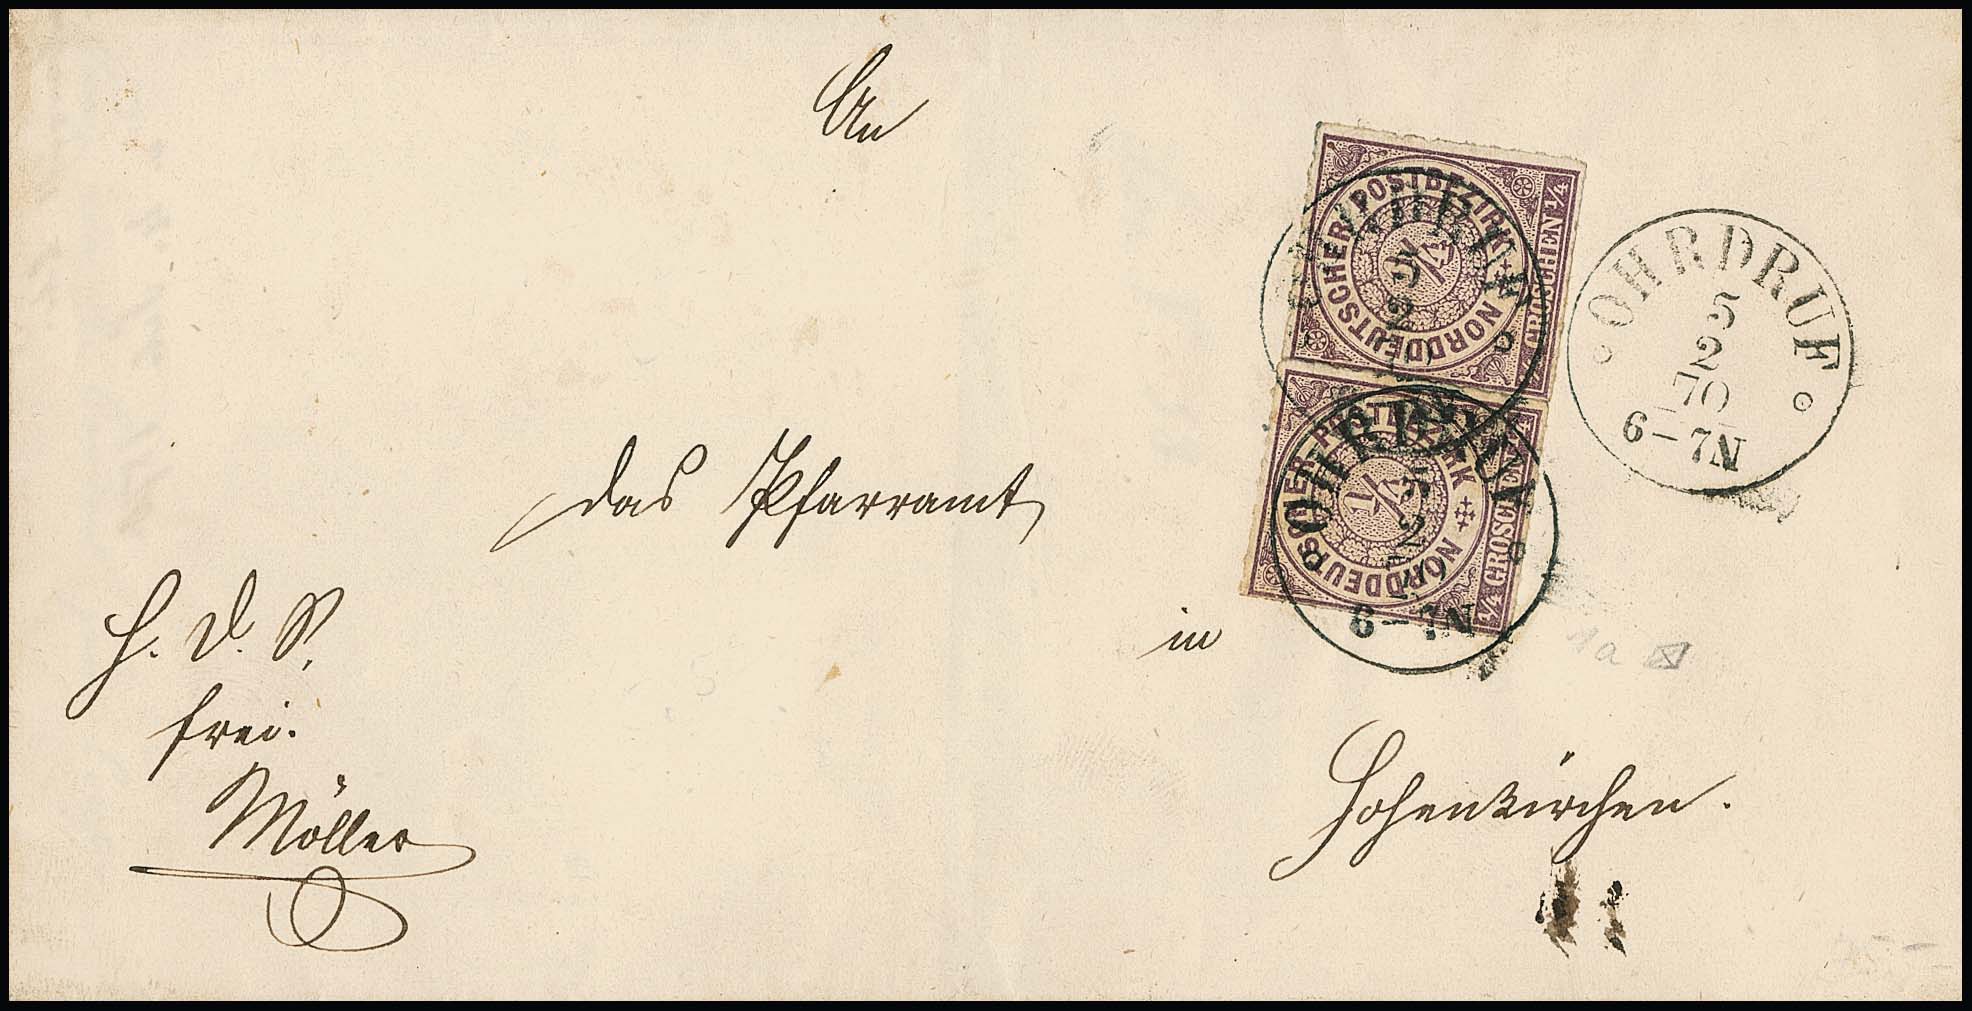 An
das Pfarramt
in
Hohenkirchen.
H. d. S.
frei.
Möller
NORDDEUTSCHER POSTBEZIRK
1/4
1/4 GROSCHEN 1/4
NORDDEUTSCHER POSTBEZIRK
1/4
1/4 GROSCHEN
OHRDRUF
5
2
70
6-7N
OHRDRUF
5
2
70
6-7N
1a